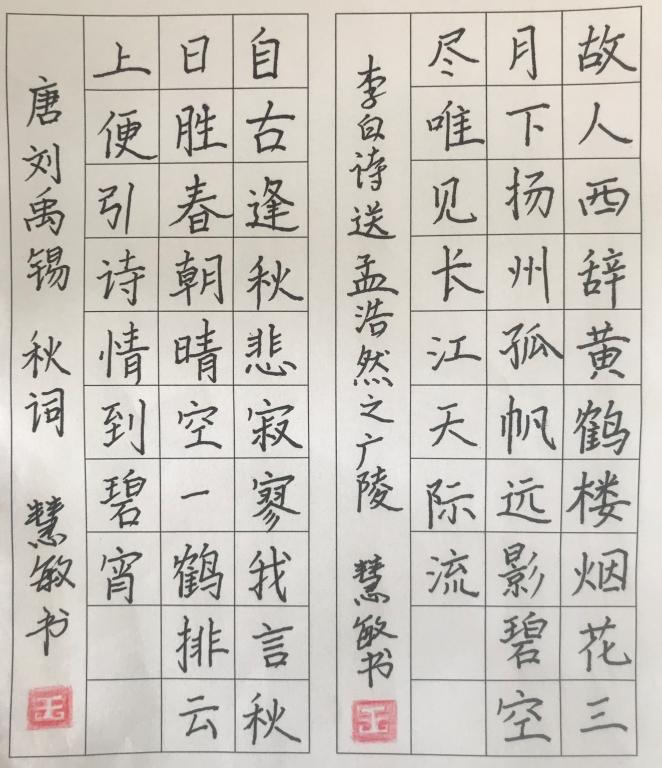 故人西辞黄鹤楼烟花三
月下扬州孤帆远影碧空
尽唯见长江天际流
李白诗送孟浩然之广陵 慧敏书
王
自古逢秋悲寂寥我言秋
日胜春朝晴空一鹤排云
上便引诗情到碧宵
唐刘禹锡 秋词 慧敏书
王